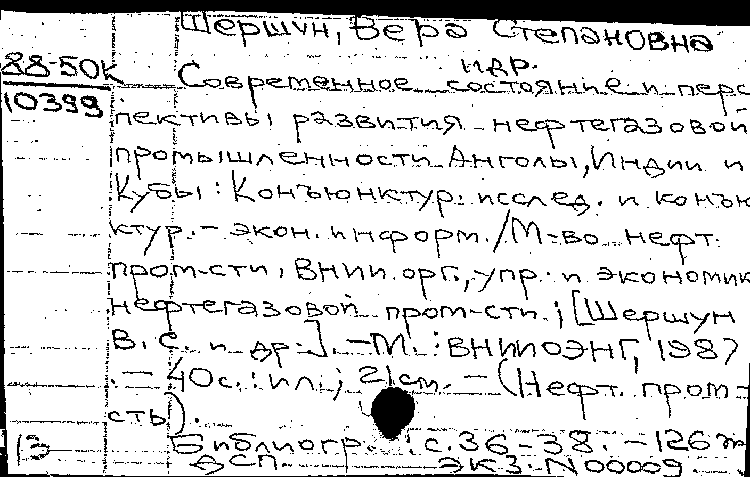 Шершун, Вера Степановна
и др.
88-50К
10399
Современное состояние и перс
пективы развития нефтегазовой
промышленности Анголы, Индии и
Кубы: Конъюнктур. исслед. и конъюн
ктур.- экон. информ. / М-во нефт.
пром-сти, ВНИИ орг., упр. и экономики
нефтегазовой пром-сти; [Шершун
В. С. и др.]. - М. : ВНИИОЭНГ, 1987
. - 40с. : ил.; 21см. - (Нефт. пром-
сть).
Библиогр.: с.36-38. - 126 
13
ДСП. ЭКЗ. N 00009.